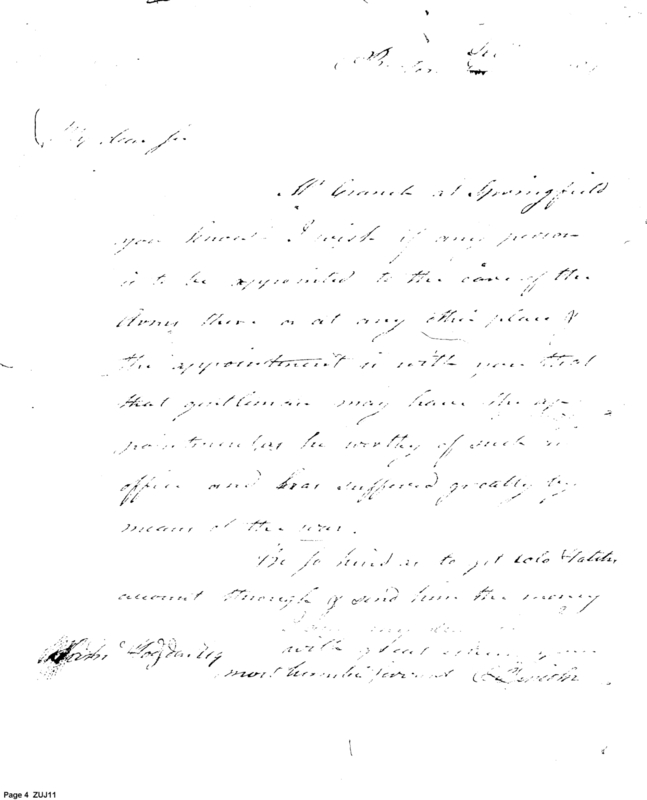 Boston
My dear Sir
Mr Branch at Springfield
you know I wish if any person
is to be appointed to the care of the
Arms there or at any other place &
the appointment is with you that
that gentleman may have the ap-
pointment as he worthy of such
office and has suffered greatly by
means of the war.
Be so kind as to get Colo
account through & send him the money
my
with great your
most humble servant
Page 4 ZUJ11